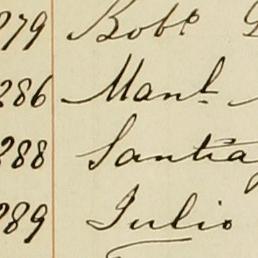 279 Robt
286 Manl
288 Santia
289 Julio